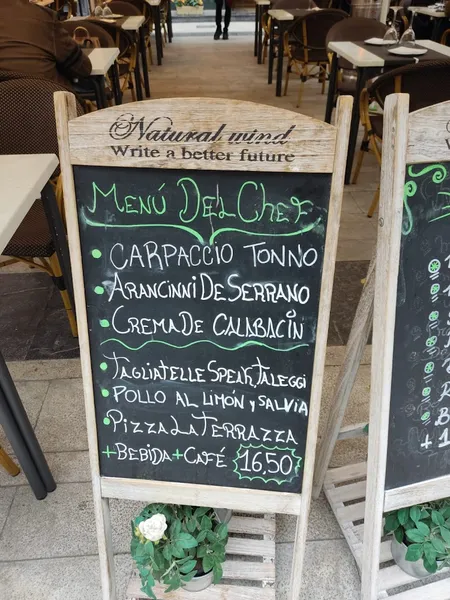 Natural wind
Write a better future
Menú Del Chef
CARPACCIO TONNO
ARANCINNI DE SERRANO
CREMA DE CALABACIN
TAGLIATELLE SPEAK TALEGGI
POLLO AL LIMÓN y SALVIA
PIZZA LA TERRAZZA
+BEBIDA+CAFÉ 16,50